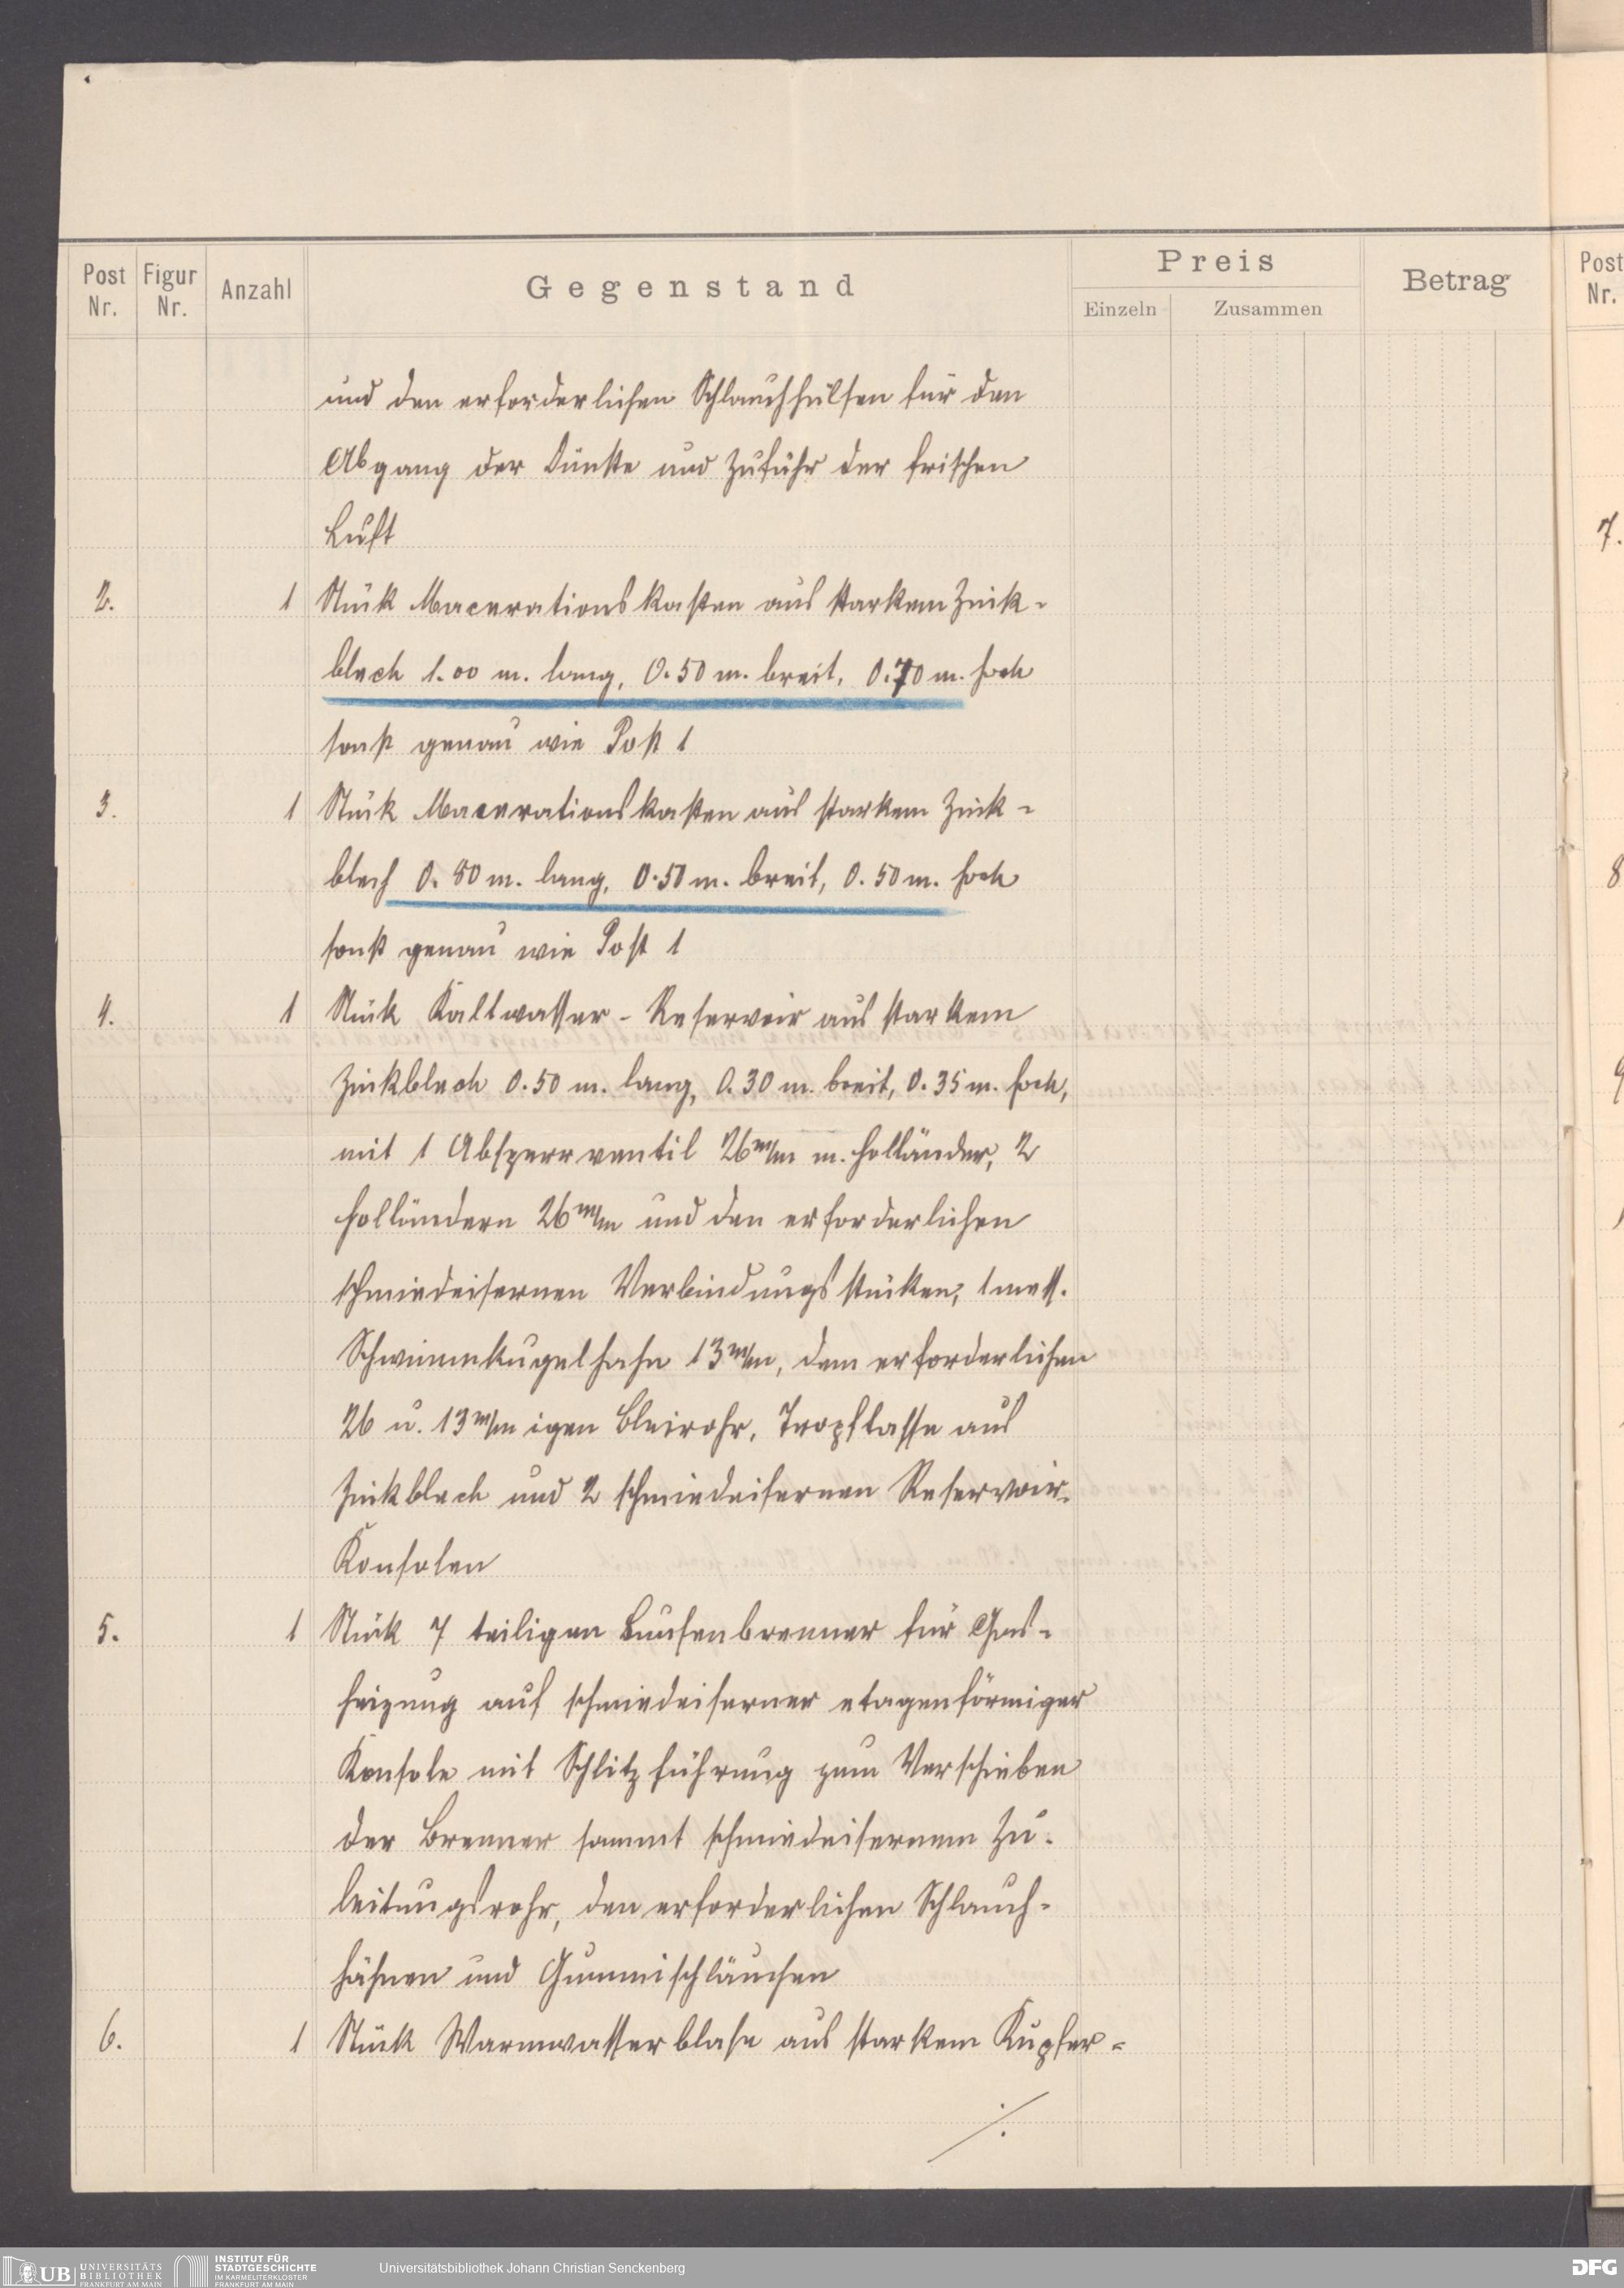 Post Nr. Figur Nr. Anzahl Gegenstand Preis Einzeln Zusammen Betrag
und den erforderlichen Schlauchhülsen für den
Abgang der Dünste und Zufuhr der frischen
Luft
2. 1 Stück Macerationskasten aus starkem Zink-
blech 1.00 m. lang, 0.50 m. breit, 0.70 m. hoch
sonst genau wie Post 1
3. 1 Stück Macerationskasten aus starkem Zink-
blech 0.80 m. lang, 0.50 m. breit, 0.50 m. hoch
sonst genau wie Post 1
4. 1 Stück Kaltwasser-Reservoir aus starkem
Zinkblech 0.50 m. lang, 0.30 m. breit, 0.35 m. hoch,
mit 1 Absperrventil 26 m/m m. Holländer, 2
Holländern 26 m/m und den erforderlichen
schmiedeisernen Verbindungsstücken, 1 mess.
Schwimmkugelhahn 13 m/m, dem erforderlichen
26 u. 13 m/m igen Bleirohr, Tropftasse aus
Zinkblech und 2 schmiedeisernen Reservoir-
Konsolen
5. 1 Stück 7 teiligen Bunsenbrenner für Gas-
heizung auf schmiedeiserner etagenförmiger
Konsole mit Schlitzführung zum Verschieben
der Brenner sammt schmiedeisernem Zu-
leitungsrohr, den erforderlichen Schlauch-
hähnen und Gummischläuchen
6. 1 Stück Warmwasserblase aus starkem Kupfer-
./.
Post Nr.
7.
8
UB UNIVERSITÄTS BIBLIOTHEK FRANKFURT AM MAIN
INSTITUT FÜR STADTGESCHICHTE IM KARMELITERKLOSTER FRANKFURT AM MAIN
Universitätsbibliothek Johann Christian Senckenberg
DFG